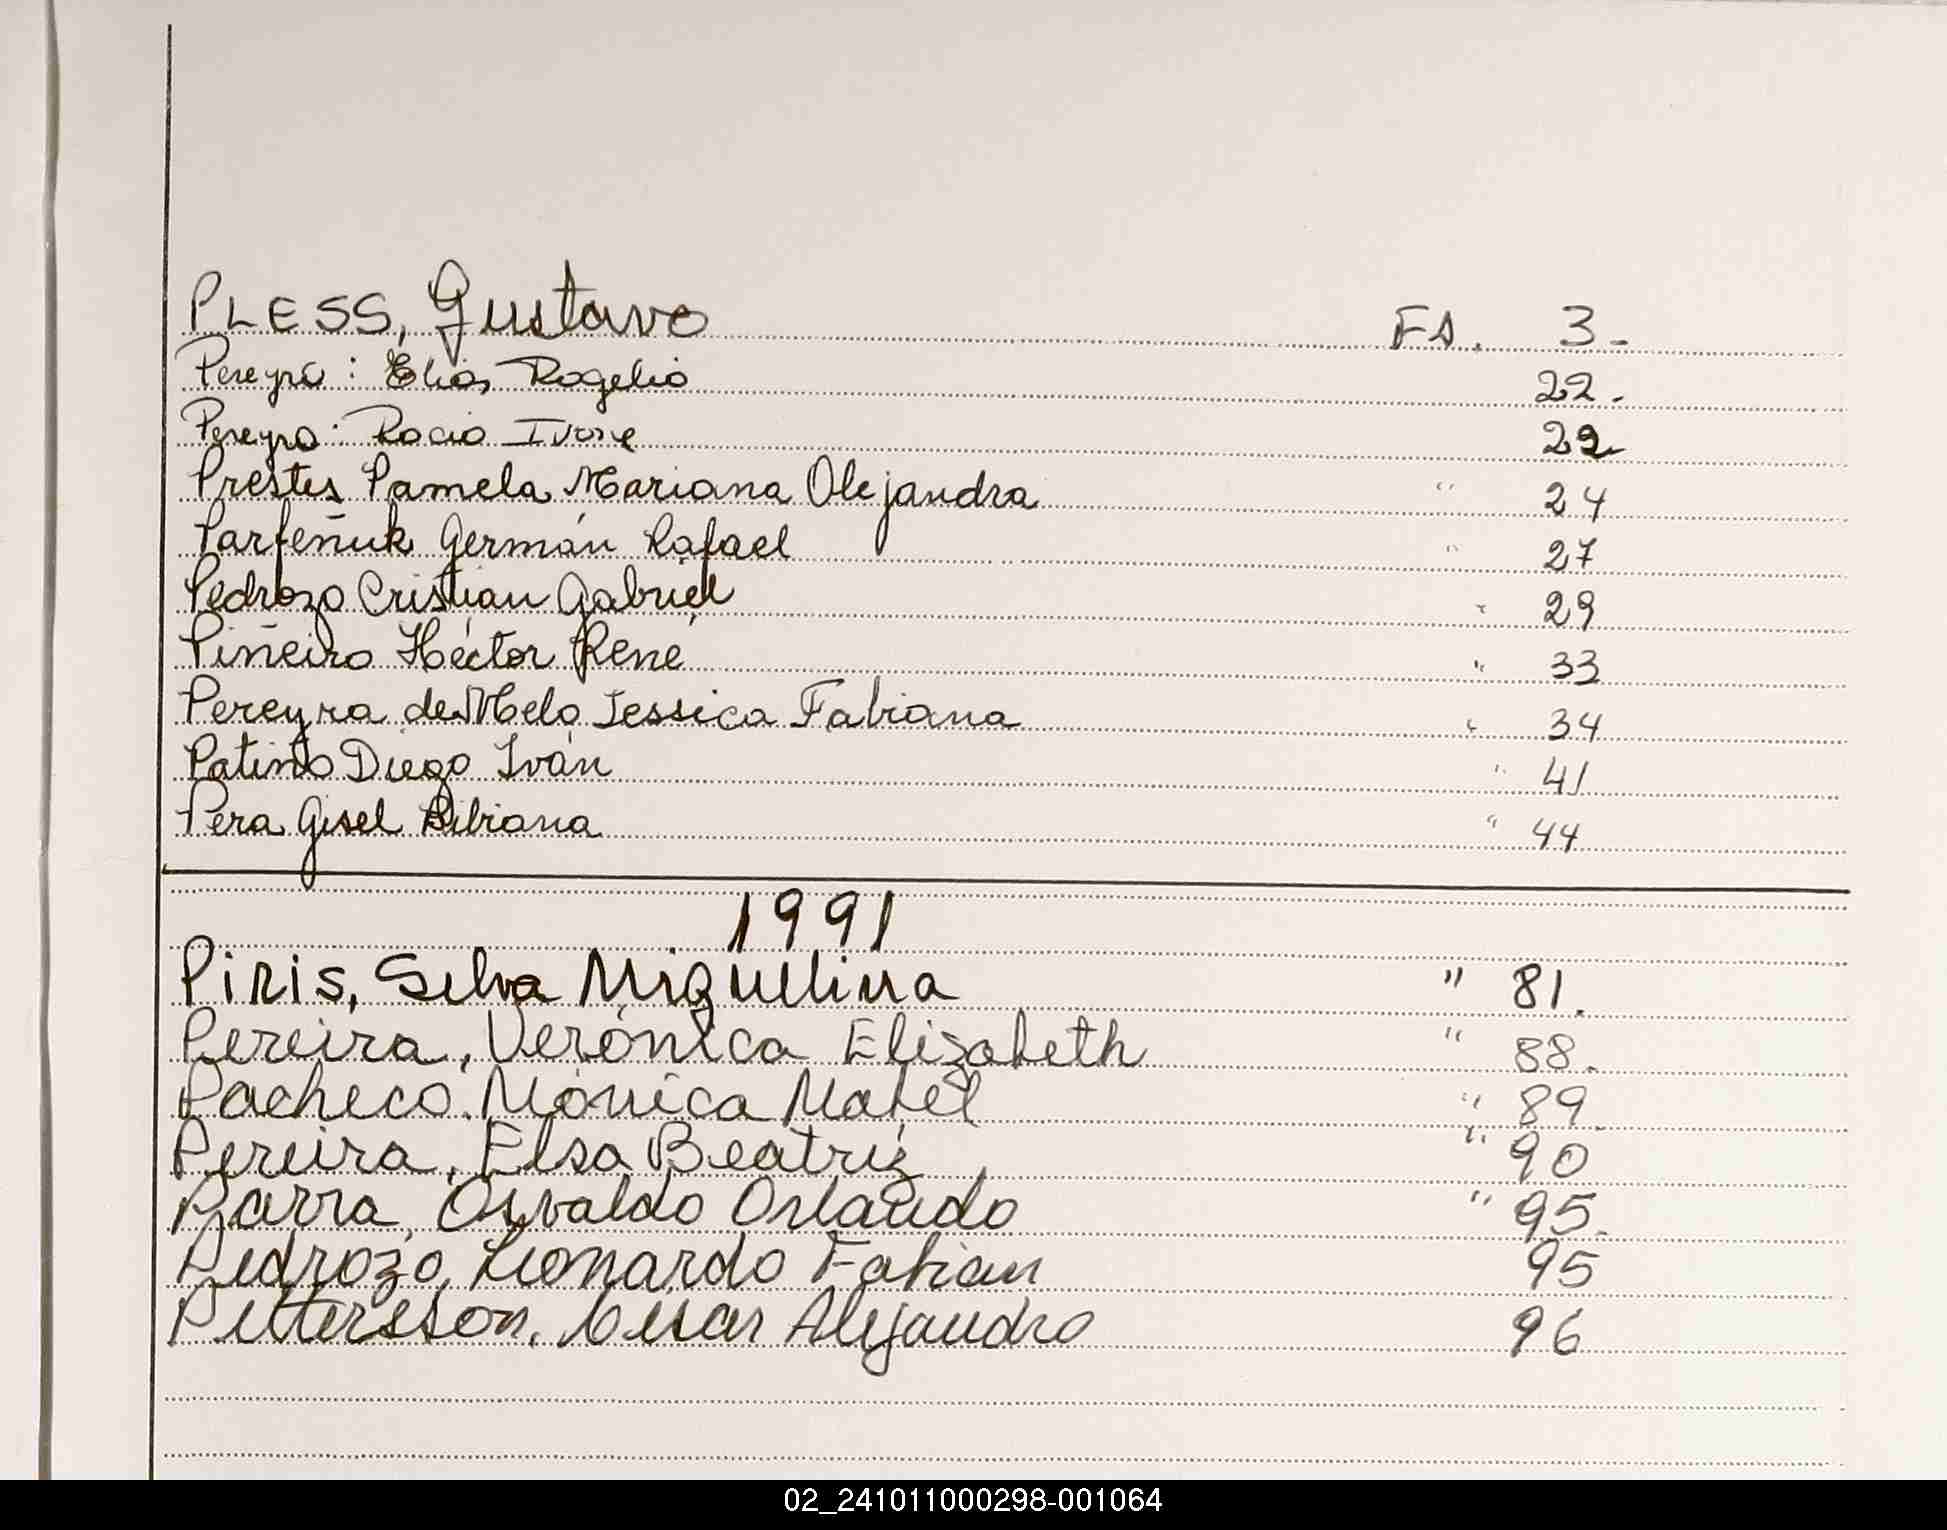 PLESS, Gustavo Fs. 3.-
Pereyra: Elias Rogelio 22.
Pereyra: Rocio Ivone 22
Prestes Pamela Mariana Alejandra " 24
Parfeñuk Germán Rafael " 27
Pedrozo Cristian Gabriel " 29
Piñeiro Héctor René " 33
Pereyra de Melo Jessica Fabiana " 34
Patiño Diego Iván " 41
Pera Gisel Bibiana " 44
1991
Piris, Selva Miguelina " 81.
Pereira, Verónica Elizabeth " 88.
Pacheco. Mónica Mabel " 89.
Pereira, Elsa Beatriz " 90
Parra, Osvaldo Orlando " 95.
Pedrozo, Leonardo Fabian 95
Pettersson, César Alejandro 96
02_241011000298-001064